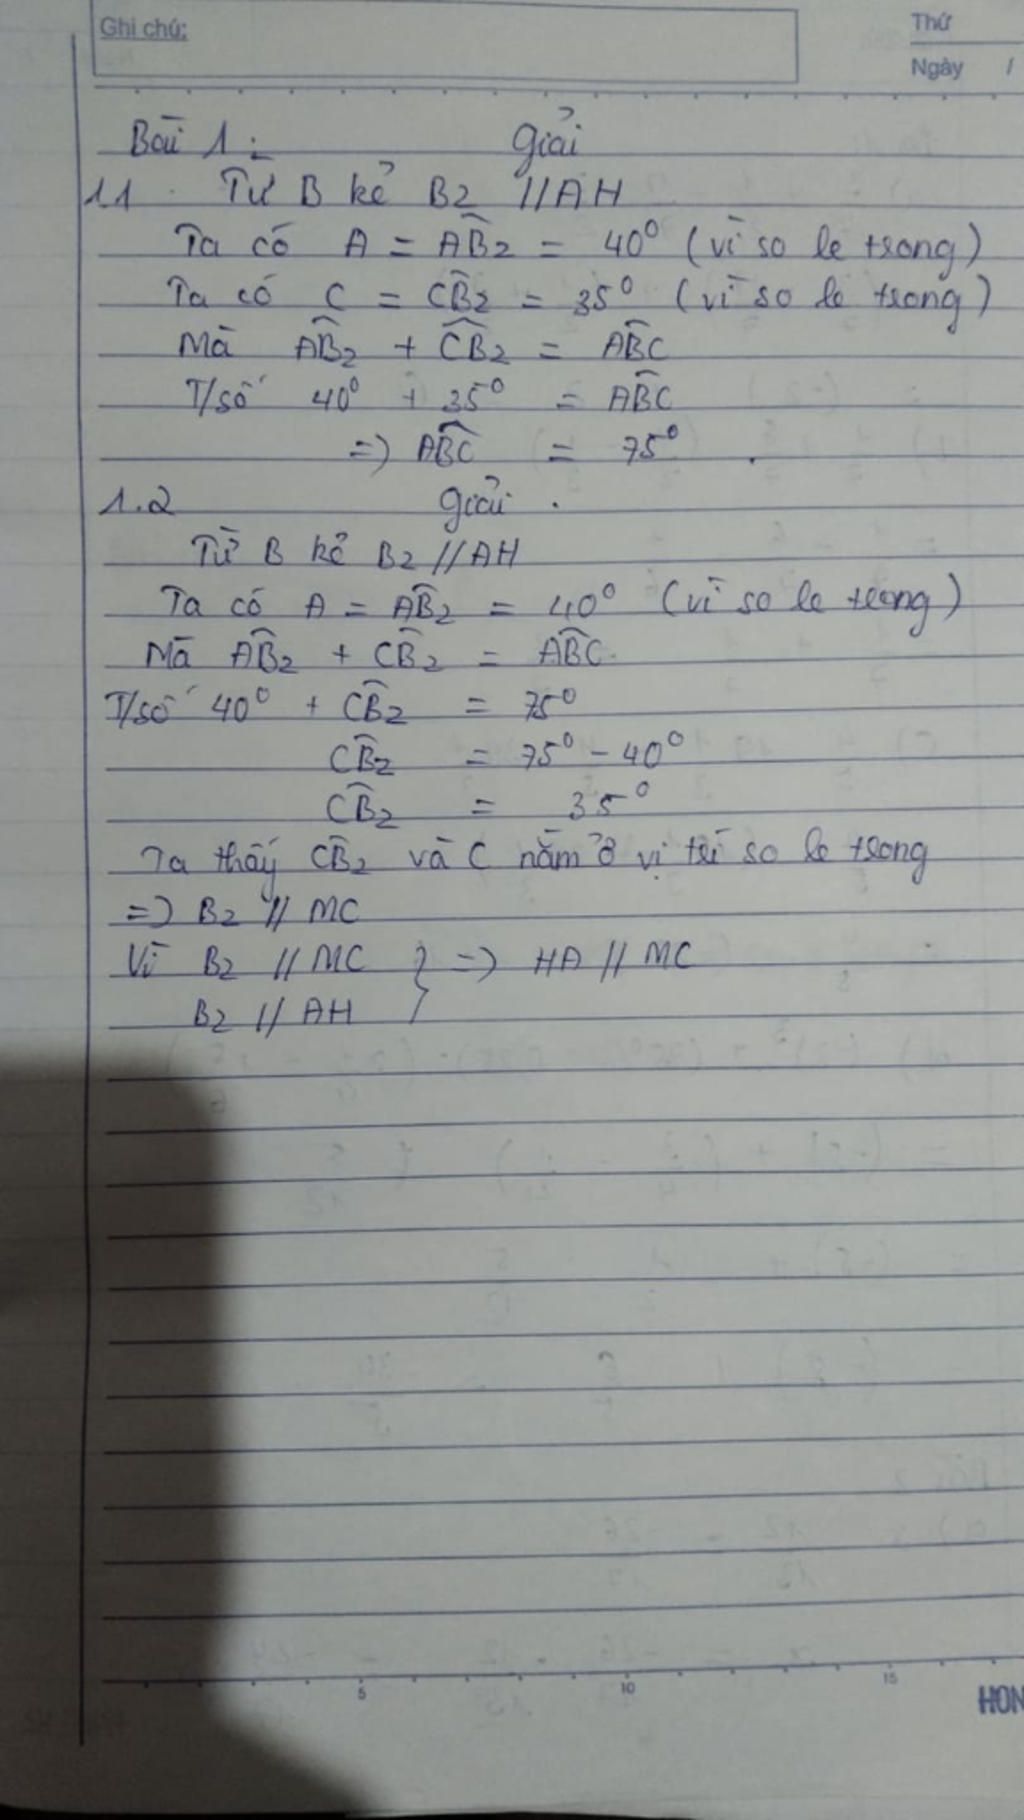 Ghi chú:
Thứ
Ngày /
Bài 1: Giải
1.1 Từ B kẻ Bz // AH
Ta có A = AB̂z = 40° (vì so le trong)
Ta có C = CB̂z = 35° (vì so le trong)
Mà AB̂z + CB̂z = AB̂C
T/số 40° + 35° = AB̂C
=> AB̂C = 75°.
1.2 Giải.
Từ B kẻ Bz // AH
Ta có A = AB̂z = 40° (vì so le trong)
Mà AB̂z + CB̂z = AB̂C.
T/số 40° + CB̂z = 75°
CB̂z = 75° - 40°
CB̂z = 35°
Ta thấy CB̂z và C nằm ở vị trí so le trong
=> Bz // MC
Vì Bz // MC } => HA // MC
Bz // AH
5 10 15
HON